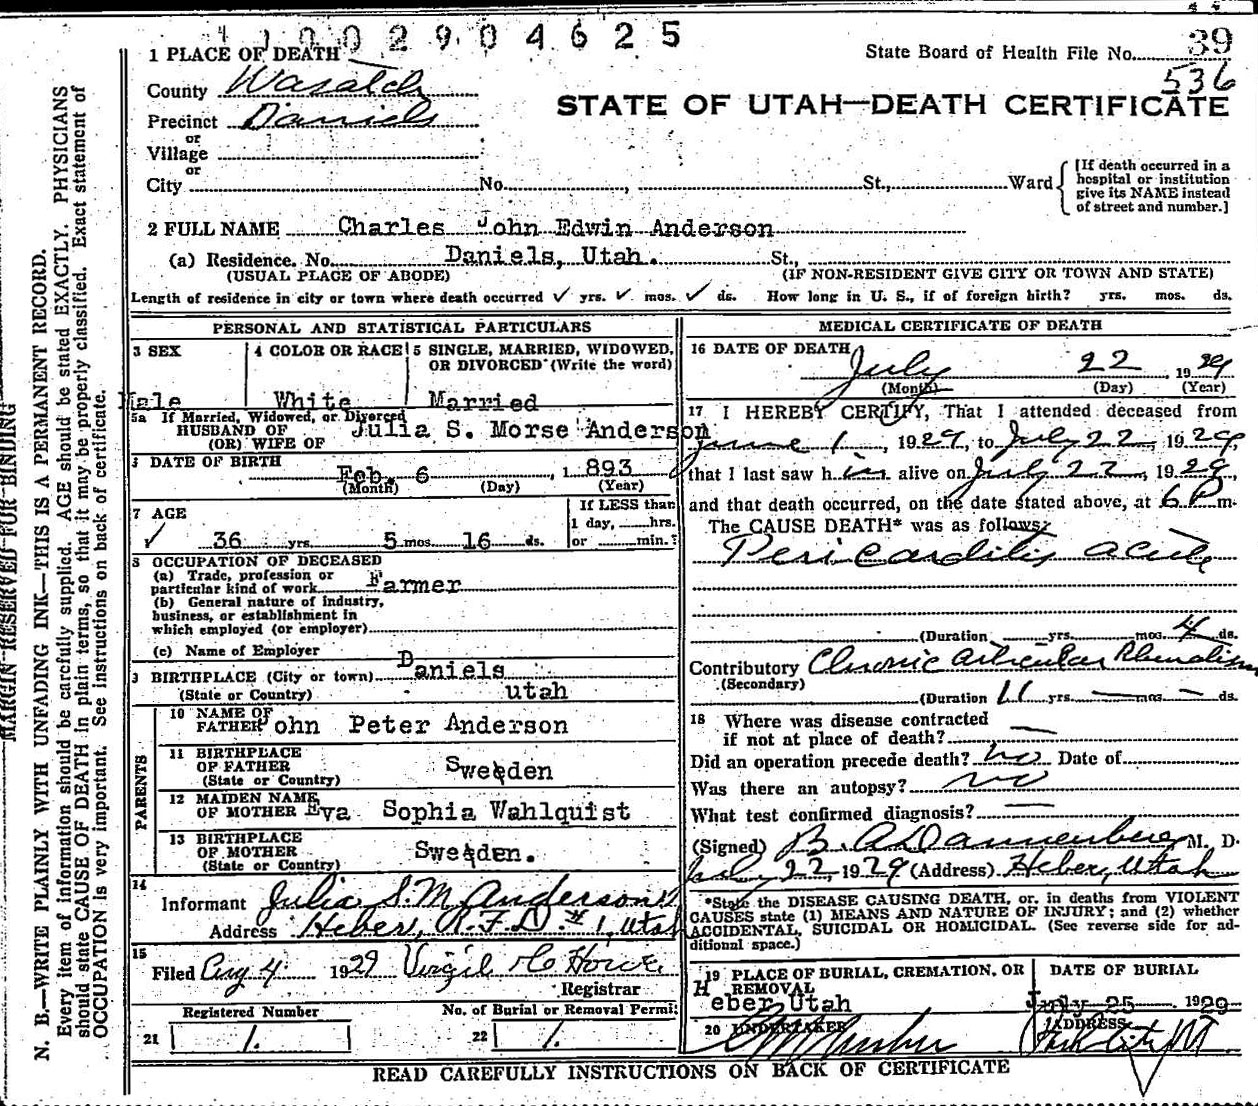 1002904625
1 PLACE OF DEATH
State Board of Health File No. 39
536
County Wasatch
Precinct Daniels
or
Village
or
City No. , St., Ward
[If death occurred in a
hospital or institution
give its NAME instead
of street and number.]
STATE OF UTAH—DEATH CERTIFICATE
2 FULL NAME Charles John Edwin Anderson
(a) Residence. No. Daniels, Utah. St.,
(USUAL PLACE OF ABODE) (IF NON-RESIDENT GIVE CITY OR TOWN AND STATE)
Length of residence in city or town where death occurred ✓ yrs. ✓ mos. ✓ ds. How long in U. S., if of foreign birth? yrs. mos. ds.
PERSONAL AND STATISTICAL PARTICULARS
3 SEX
Male
4 COLOR OR RACE
White
5 SINGLE, MARRIED, WIDOWED,
OR DIVORCED (Write the word)
Married
5a If Married, Widowed, or Divorced
HUSBAND OF
(OR) WIFE OF Julia S. Morse Anderson
DATE OF BIRTH
Feb. 6 , 1893
(Month) (Day) (Year)
7 AGE
✓ 36 yrs. 5 mos. 16 ds.
If LESS than
1 day, hrs.
or min.?
8 OCCUPATION OF DECEASED
(a) Trade, profession or
particular kind of work Farmer
(b) General nature of industry,
business, or establishment in
which employed (or employer)
(c) Name of Employer
BIRTHPLACE (City or town) Daniels
(State or Country) utah
PARENTS
10 NAME OF
FATHER John Peter Anderson
11 BIRTHPLACE
OF FATHER
(State or Country) Sweeden
12 MAIDEN NAME
OF MOTHER Eva Sophia Wahlquist
13 BIRTHPLACE
OF MOTHER
(State or Country) Sweeden.
14
Informant Julia S. M. Anderson
Address Heber, R.F.D. # 1, Utah
15
Filed Aug 4 1929 Virgil
Registrar
Registered Number No. of Burial or Removal Permit
21 1. 22 1.
MEDICAL CERTIFICATE OF DEATH
16 DATE OF DEATH
July 22 1929
(Month) (Day) (Year)
17 I HEREBY CERTIFY, That I attended deceased from
June 1, 1929, to July 22, 1929,
that I last saw him alive on July 22, 1929
and that death occurred, on the date stated above, at 6 P m.
The CAUSE DEATH* was as follows:
Pericarditis acute
(Duration yrs. mos. 4 ds.
Contributory Chronic articular Rheumatism
(Secondary)
(Duration 11 yrs. — mos. — ds.
18 Where was disease contracted
if not at place of death? —
Did an operation precede death? no Date of
Was there an autopsy? no
What test confirmed diagnosis? —
(Signed) B. A. Dannenberg M. D.
July 22, 1929 (Address) Heber, Utah
*State the DISEASE CAUSING DEATH, or, in deaths from VIOLENT
CAUSES state (1) MEANS AND NATURE OF INJURY; and (2) whether
ACCIDENTAL, SUICIDAL OR HOMICIDAL. (See reverse side for ad-
ditional space.)
19 PLACE OF BURIAL, CREMATION, OR
REMOVAL
Heber Utah
DATE OF BURIAL
July 25 1929
20 UNDERTAKER
ADDRESS
Park City Ut
READ CAREFULLY INSTRUCTIONS ON BACK OF CERTIFICATE
MARGIN RESERVED FOR BINDING
N. B.—WRITE PLAINLY WITH UNFADING INK—THIS IS A PERMANENT RECORD.
Every item of information should be carefully supplied. AGE should be stated EXACTLY. PHYSICIANS
should state CAUSE OF DEATH in plain terms, so that it may be properly classified. Exact statement of
OCCUPATION is very important. See instructions on back of certificate.